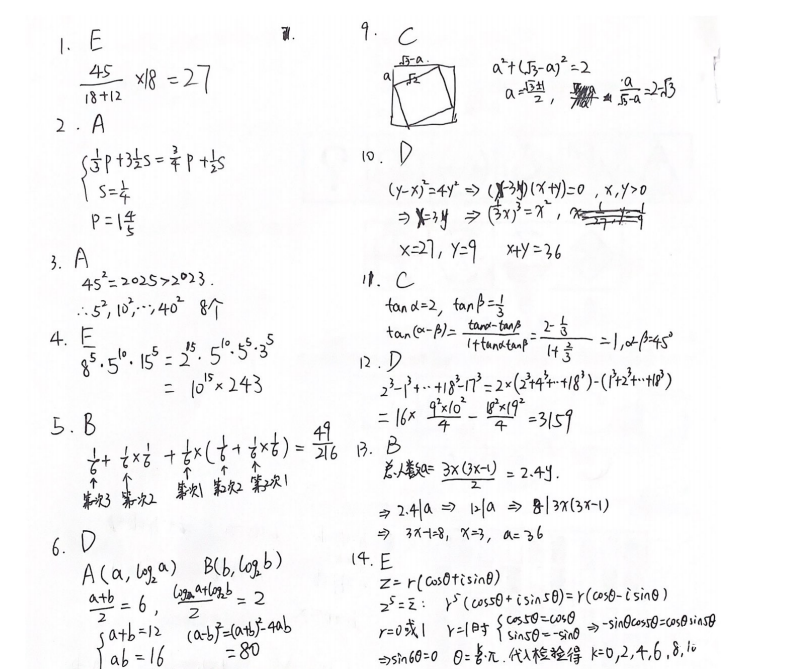 1. E
45/(18+12) ×18 = 27
2. A
{ 1/3 P + 3 1/2 S = 3/4 P + 1/2 S
S = 1/4
P = 1 4/5
3. A
45² = 2025 > 2023.
∴ 5², 10², ⋯, 40² 8个
4. E
8⁵·5¹⁰·15⁵ = 2¹⁵·5¹⁰·5⁵·3⁵
= 10¹⁵ × 243
5. B
1/6 + 1/6 × 1/6 + 1/6 × (1/6 + 1/6 × 1/6) = 49/216
↑ ↑ ↑ ↑ ↑
第1次3 第1次2 第1次1 第2次2 第2次1
6. D
A(a, log₂a) B(b, log₂b)
(a+b)/2 = 6, (log₂a+log₂b)/2 = 2
{ a+b=12 (a-b)²=(a+b)²-4ab
ab=16 =80
9. C
√3-a
a
√2
a²+(√3-a)²=2
a=(√3±1)/2, a/(√3-a)=2-√3
10. D
(y-x)²=4y² ⇒ (x-3y)(x+y)=0, x,y>0
⇒ x=3y ⇒ (1/3 x)³=x²,
x=27, y=9 x+y=36
11. C
tanα=2, tanβ=1/3
tan(α-β)= (tanα-tanβ)/(1+tanαtanβ) = (2-1/3)/(1+2/3) =1, α-β=45°
12. D
2³-1³+⋯+18³-17³=2×(2³+4³+⋯+18³)-(1³+2³+⋯+18³)
=16× (9²×10²)/4 - (18²×19²)/4 =3159
13. B
总人数a= 3x(3x-1)/2 = 2.4y.
⇒ 2.4|a ⇒ 12|a ⇒ 8|3x(3x-1)
⇒ 3x-1=8, x=3, a=36
14. E
z=r(cosθ+isinθ)
z⁵=z̄: r⁵(cos5θ+isin5θ)=r(cosθ-isinθ)
r=0或1 r=1时 { cos5θ=cosθ sin5θ=-sinθ ⇒ -sinθcos5θ=cosθsin5θ
⇒sin6θ=0 θ=k/6·π. 代入检验得 k=0,2,4,6,8,10